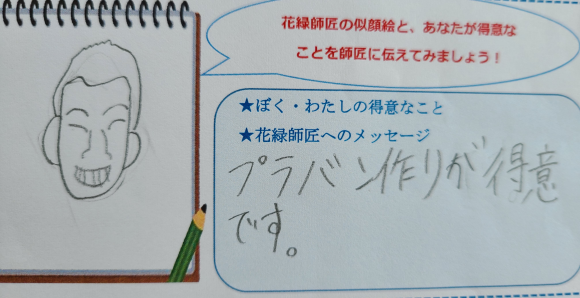 花緑師匠の似顔絵と、あなたが得意な
ことを師匠に伝えてみましょう！
★ぼく・わたしの得意なこと
★花緑師匠へのメッセージ
プラバン作りが得意
です。